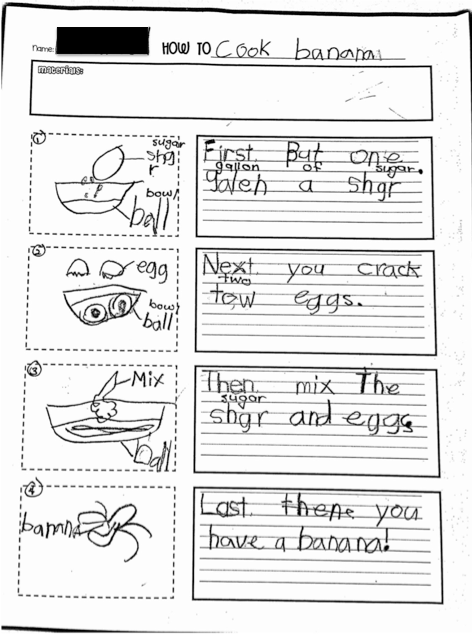 Name:
HOW TO Cook banana
materials:
1
sugar
shgr
bowl
ball
First. But one
gallon of sugar.
galeh a shgr
2
egg
bowl
ball
Next you crack
two
tow eggs.
3
Mix
ball
Then mix The
sugar
shgr and eggs
4
banana
Last. thene you
have a banana!